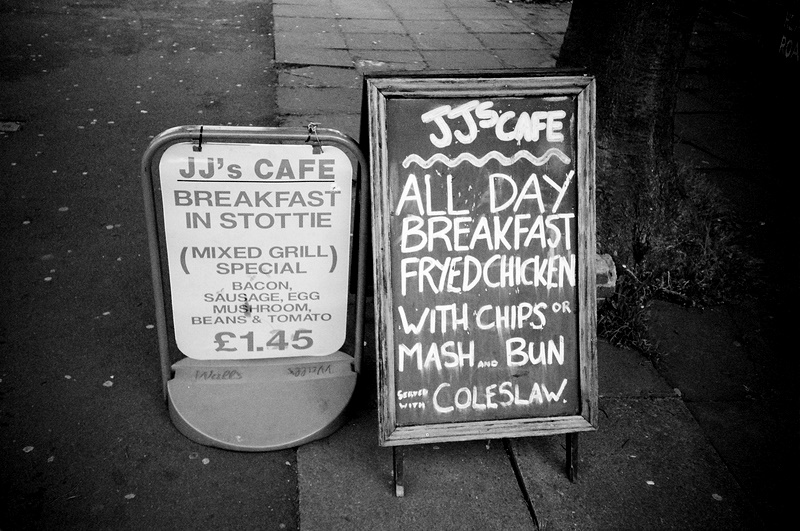 JJ's CAFE
BREAKFAST
IN STOTTIE
(MIXED GRILL)
SPECIAL
BACON,
SAUSAGE, EGG
MUSHROOM,
BEANS & TOMATO
£1.45
Wall's Wall's
JJ'S CAFE
ALL DAY
BREAKFAST
FRYED CHICKEN
WITH CHIPS OR
MASH AND BUN
SERVED
WITH COLESLAW.